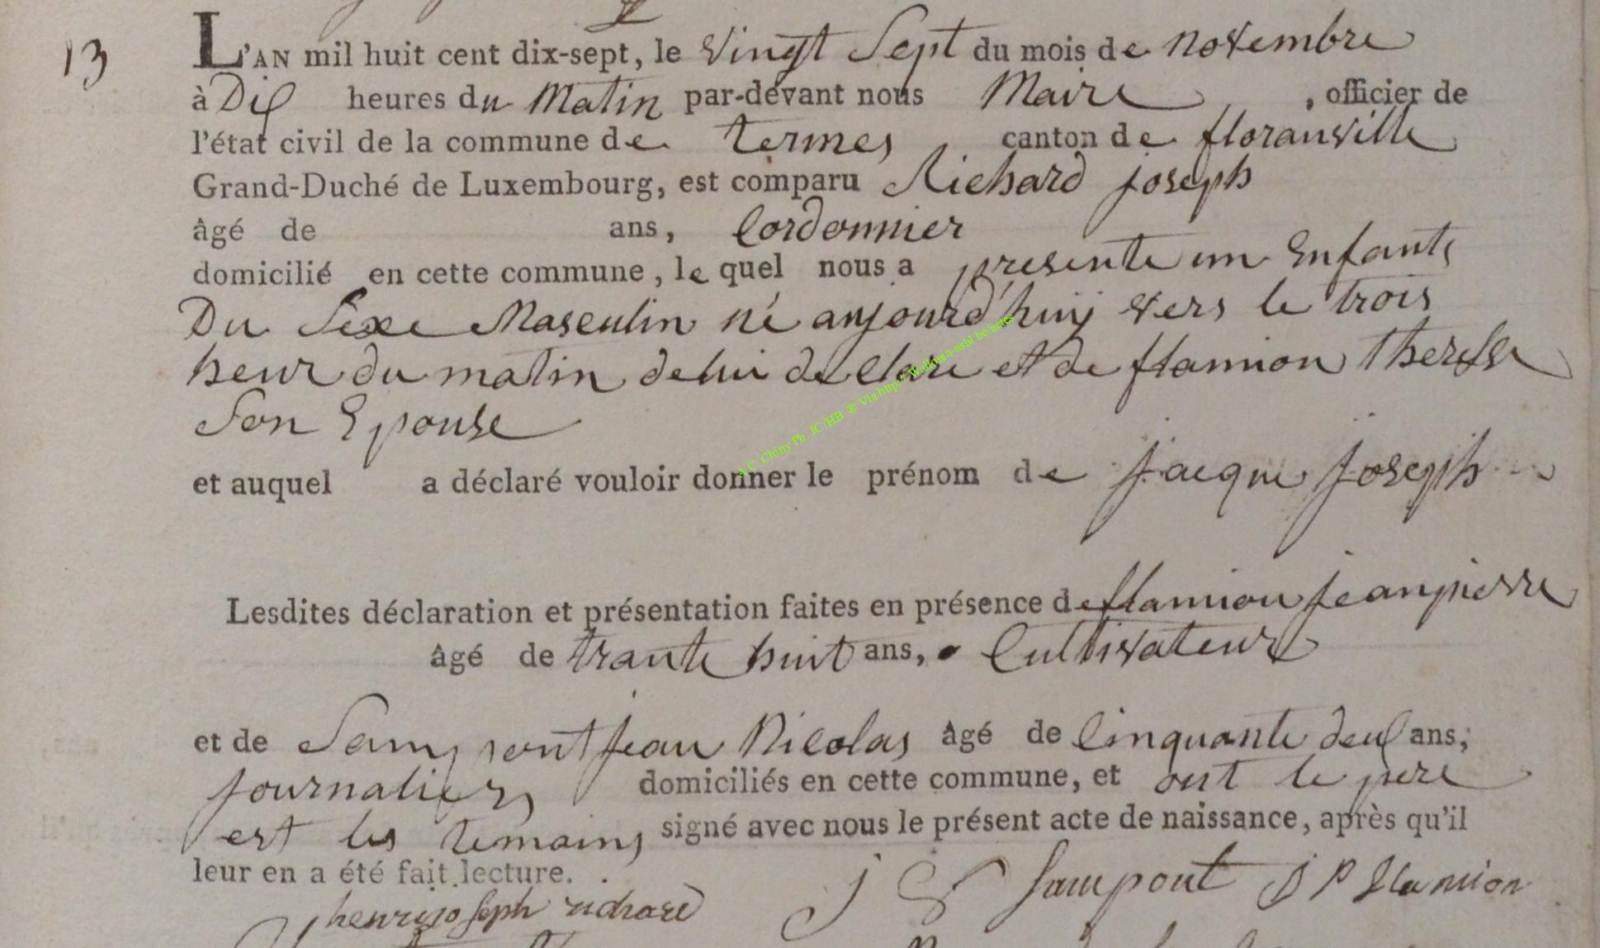 13
L'AN mil huit cent dix-sept, le vingt sept du mois de novembre
à Dix heures du Matin par-devant nous Maire , officier de
l'état civil de la commune de termes canton de floranville
Grand-Duché de Luxembourg, est comparu Richard joseph
âgé de ans, Cordonnier
domicilié en cette commune, le quel nous a presente un Enfants
Du Sexe Masculin né aujourd'huij vers le trois
heur du matin de lui declare et de flamion theresse
Son Epouse
et auquel a déclaré vouloir donner le prénom de jacque joseph
Lesdites déclaration et présentation faites en présence de flamion jean pierre
âgé de trante huit ans, Cultivateur
et de Sampont jean Nicolas âgé de Cinquante deux ans,
journalier domiciliés en cette commune, et ont le pere
est les temains signé avec nous le présent acte de naissance, après qu'il
leur en a été fait lecture.
henri joseph richard
J Sampont J P flamion